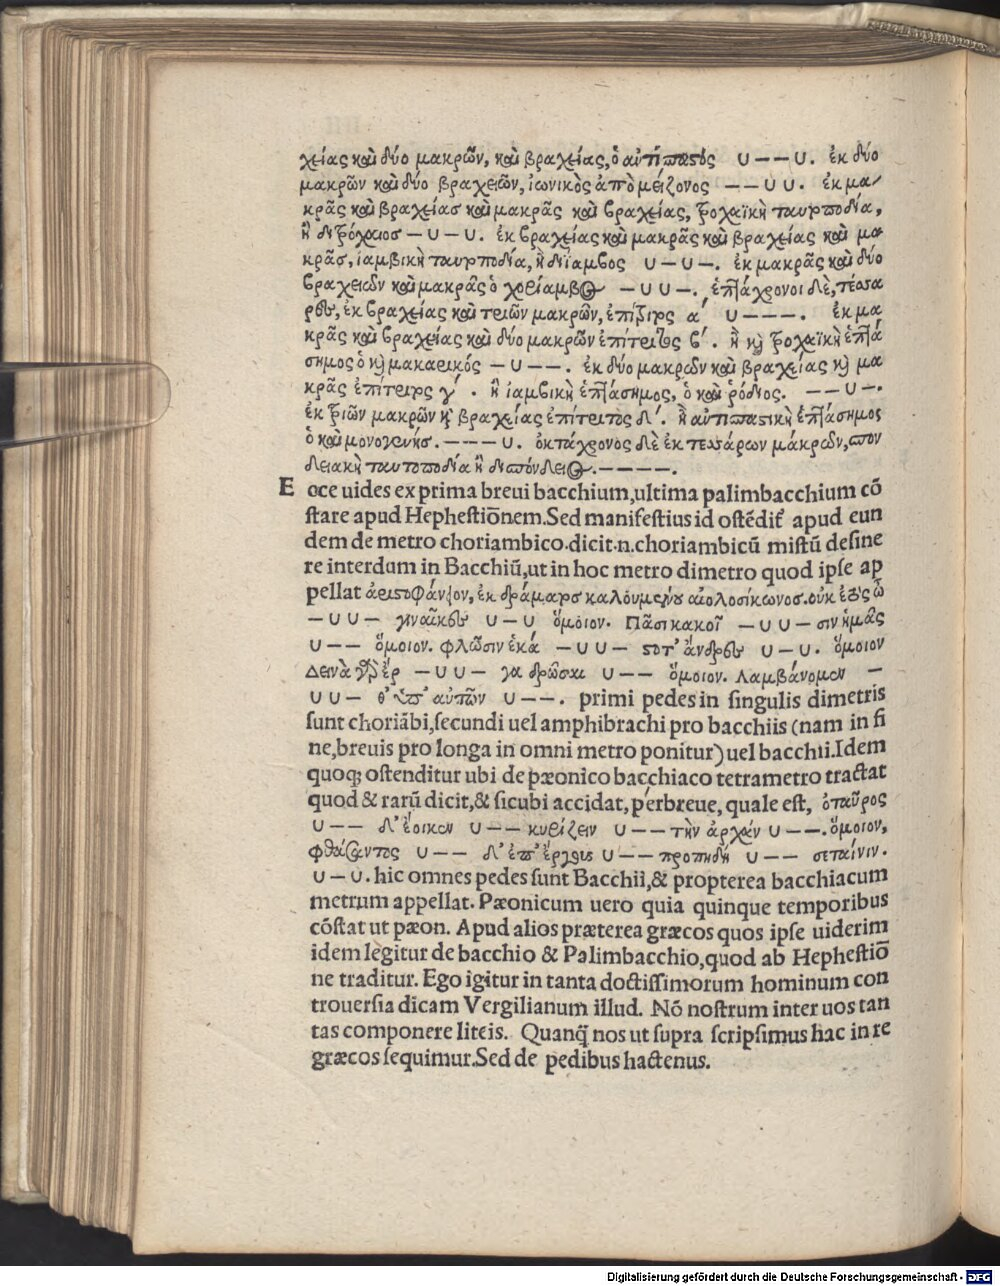 χείας καὶ δύο μακρῶν, καὶ βραχείας, ὁ ἀντίπαστός ∪ – – ∪. ἐκ δύο
μακρῶν καὶ δύο βραχειῶν, ἰωνικὸς ἀπὸ μείζονος – – ∪ ∪. ἐκ μα
κρᾶς καὶ βραχείασ καὶ μακρᾶς καὶ βραχείας, τροχαϊκὴ ταυτοποδία,
ἢ διτρόχαιοσ – ∪ – ∪. ἐκ βραχείας καὶ μακρᾶς καὶ βραχείας καὶ μα
κρᾶσ, ἰαμβικὴ ταυτοποδία, ἢ διΐαμβος ∪ – ∪ –. ἐκ μακρᾶς καὶ δύο
βραχειῶν καὶ μακρᾶς ὁ χορίαμβος – ∪ ∪ –. ἑπτάχρονοι δὲ, τέσσα
ρες, ἐκ βραχείας καὶ τριῶν μακρῶν, ἐπίτριτος α΄ ∪ – – –. ἐκ μα
κρᾶς καὶ βραχείας καὶ δύο μακρῶν ἐπίτριτος β΄. ἢ καὶ τροχαϊκὴ ἑπτά
σημος ὁ καὶ μακαρικός – ∪ – –. ἐκ δύο μακρῶν καὶ βραχείας καὶ μα
κρᾶς ἐπίτριτος γ΄. ἢ ἰαμβικὴ ἑπτάσημος, ὁ καὶ ῥόδιος. – – ∪ –.
ἐκ τριῶν μακρῶν καὶ βραχείας ἐπίτριτος δ΄. ἢ ἀντιπαστικὴ ἑπτάσημος
ὁ καὶ μονογενήσ. – – – ∪. ὀκτάχρονος δὲ ἐκ τεσσάρων μάκρῶν, σπον
δειακὴ ταυτοποδία ἢ δισπόνδειος. – – – –.
E cce uides ex prima breui bacchium, ultima palimbacchium cō
stare apud Hephestiōnem. Sed manifestius id ostēdit apud eun
dem de metro choriambico. dicit.n. choriambicū mistū desine
re interdum in Bacchiū, ut in hoc metro dimetro quod ipse ap
pellat ἀριστοφάνειον, ἐκ δράματοσ καλούμενου αἰολοσίκωνοσ. οὐκ ἐτὸς ὦ
– ∪ ∪ – γυναῖκες ∪ – ∪ ὅμοιον. Πᾶσι κακοῖ – ∪ ∪ – σιν ἡμᾶς
∪ – – ὅμοιον. φλῶσιν ἑκά – ∪ ∪ – στοτ' ἄνδρες ∪ – ∪. ὅμοιον
Δεινὰ γὰρ ἔρ – ∪ ∪ – γα δρῶσαι ∪ – – ὅμοιον. Λαμβάνομεν –
∪ ∪ – θ' ὑπ' αὐτῶν ∪ – –. primi pedes in singulis dimetris
sunt choriābi, secundi uel amphibrachi pro bacchiis (nam in fi
ne, breuis pro longa in omni metro ponitur) uel bacchii. Idem
quoq; ostenditur ubi de pæonico bacchiaco tetrametro tractat
quod & rarū dicit, & sicubi accidat, pérbreue, quale est, ὁ ταῦρος
∪ – – δ' ἔοικεν ∪ – – κυρίξειν ∪ – – τὴν ἀρχάν ∪ – –. ὅμοιον,
φθάσαντος ∪ – – δ' ἐπ' ἔργοις ∪ – – προπηδή ∪ – – σεταίνιν.
∪ – ∪. hic omnes pedes sunt Bacchii, & propterea bacchiacum
metrum appellat. Pæonicum uero quia quinque temporibus
cōstat ut pæon. Apud alios præterea græcos quos ipse uiderim
idem legitur de bacchio & Palimbacchio, quod ab Hephestiō
ne traditur. Ego igitur in tanta doctissimorum hominum con
trouersia dicam Vergilianum illud. Nō nostrum inter uos tan
tas componere liteis. Quanq̄ nos ut supra scripsimus hac in re
græcos sequimur. Sed de pedibus hactenus.
Digitalisierung gefördert durch die Deutsche Forschungsgemeinschaft - DFG